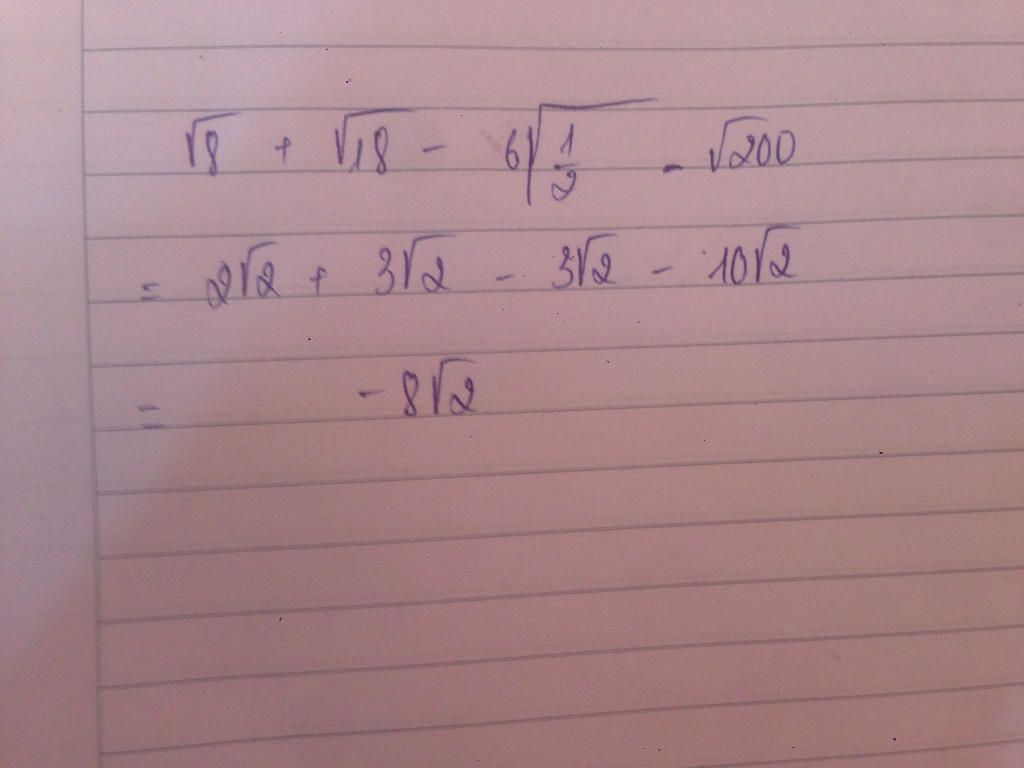 √8 + √18 - 6√1/2 - √200
= 2√2 + 3√2 - 3√2 - 10√2
= - 8√2